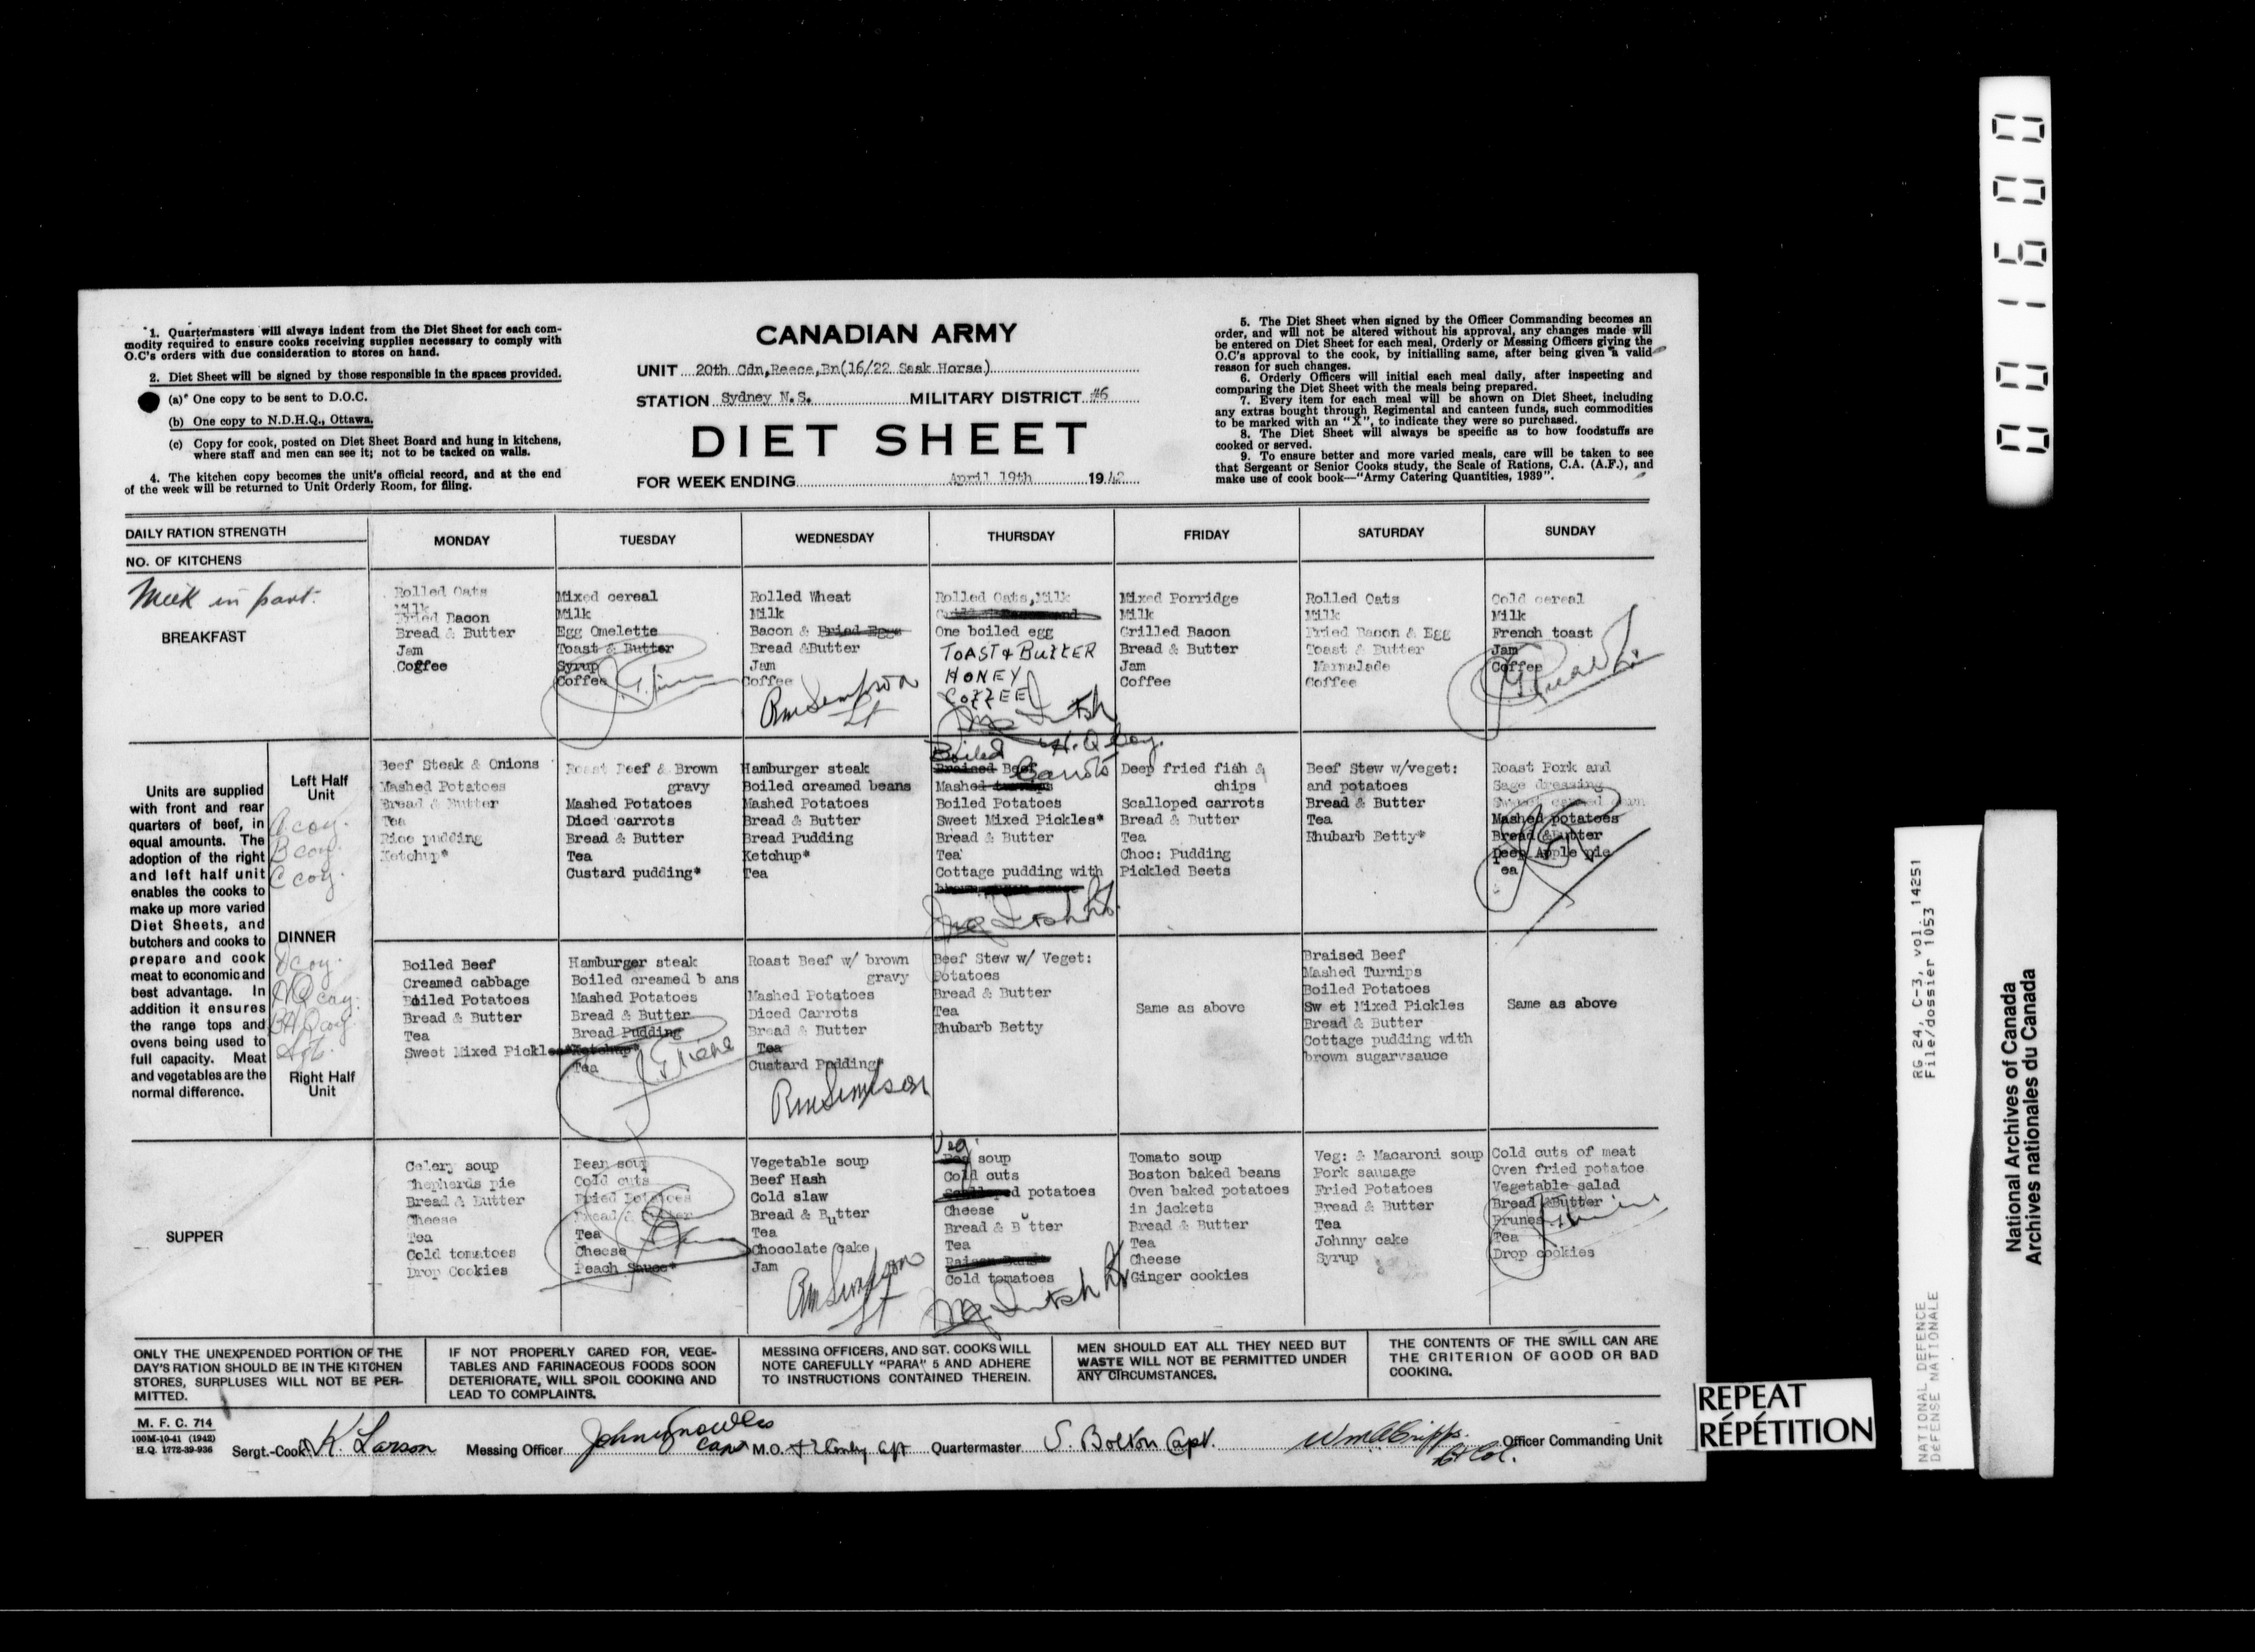 1. Quartermasters will always indent from the Diet Sheet for each com-
modity required to ensure cooks receiving supplies necessary to comply with
O.C's orders with due consideration to stores on hand.
2. Diet Sheet will be signed by those responsible in the spaces provided.
(a) One copy to be sent to D.O.C.
(b) One copy to N.D.H.Q., Ottawa.
(c) Copy for cook, posted on Diet Sheet Board and hung in kitchens,
where staff and men can see it; not to be tacked on walls.
4. The kitchen copy becomes the unit's official record, and at the end
of the week will be returned to Unit Orderly Room, for filing.
CANADIAN ARMY
UNIT 20th Cdn,Recce,Bn(16/22 Sask Horse)
STATION Sydney N.S. MILITARY DISTRICT #6
DIET SHEET
FOR WEEK ENDING April 19th 1942
5. The Diet Sheet when signed by the Officer Commanding becomes an
order, and will not be altered without his approval, any changes made will
be entered on Diet Sheet for each meal, Orderly or Messing Officers giving the
O.C's approval to the cook, by initialling same, after being given a valid
reason for such changes.
6. Orderly Officers will initial each meal daily, after inspecting and
comparing the Diet Sheet with the meals being prepared.
7. Every item for each meal will be shown on Diet Sheet, including
any extras bought through Regimental and canteen funds, such commodities
to be marked with an "X", to indicate they were so purchased.
8. The Diet Sheet will always be specific as to how foodstuffs are
cooked or served.
9. To ensure better and more varied meals, care will be taken to see
that Sergeant or Senior Cooks study, the Scale of Rations, C.A. (A.F.), and
make use of cook book—"Army Catering Quantities, 1939".
DAILY RATION STRENGTH
NO. OF KITCHENS
MONDAY
TUESDAY
WEDNESDAY
THURSDAY
FRIDAY
SATURDAY
SUNDAY
in part.
BREAKFAST
Rolled Oats
Milk
Fried Bacon
Bread & Butter
Jam
Coffee
Mixed cereal
Milk
Egg Omelette
Toast & Butter
Syrup
Coffee
Rolled Wheat
Milk
Bacon & Fried Eggs
Bread &Butter
Jam
Coffee
RM Simpson
Lt
Rolled Oats,Milk
One boiled egg
TOAST & BUTTER
HONEY
COFFEE
H.Q Coy.
Mixed Porridge
Milk
Grilled Bacon
Bread & Butter
Jam
Coffee
Rolled Oats
Milk
Fried Bacon & Egg
Toast & Butter
Marmalade
Coffee
Cold cereal
Milk
French toast
Jam
Coffee
Units are supplied
with front and rear
quarters of beef, in
equal amounts. The
adoption of the right
and left half unit
enables the cooks to
make up more varied
Diet Sheets, and
butchers and cooks to
prepare and cook
meat to economic and
best advantage. In
addition it ensures
the range tops and
ovens being used to
full capacity. Meat
and vegetables are the
normal difference.
Left Half
Unit
A coy.
B coy.
C coy.
DINNER
D coy.
HQ coy.
Right Half
Unit
Beef Steak & Onions
Mashed Potatoes
Bread & Butter
Tea
Rice pudding
Ketchup*
Roast Beef & Brown
gravy
Mashed Potatoes
Diced carrots
Bread & Butter
Tea
Custard pudding*
Hamburger steak
Boiled creamed beans
Mashed Potatoes
Bread & Butter
Bread Pudding
Ketchup*
Tea
Boiled
Braised Beef
Carrots
Mashed turnips
Boiled Potatoes
Sweet Mixed Pickles*
Bread & Butter
Tea
Cottage pudding with
Deep fried fish &
chips
Scalloped carrots
Bread & Butter
Tea
Choc: Pudding
Pickled Beets
Beef Stew w/veget:
and potatoes
Bread & Butter
Tea
Rhubarb Betty*
Roast Pork and
Sage dressing
Mashed potatoes
Bread &Butter
Deep Apple pie
Tea
Boiled Beef
Creamed cabbage
Boiled Potatoes
Bread & Butter
Tea
Sweet Mixed Pickles*
Hamburger steak
Boiled creamed b ans
Mashed Potatoes
Bread & Butter
Bread Pudding
Ketchup*
Tea
Roast Beef w/ brown
gravy
Mashed Potatoes
Diced Carrots
Bread & Butter
Tea
Custard Pudding*
RM Simpson
Beef Stew w/ Veget:
Potatoes
Bread & Butter
Tea
Rhubarb Betty
Same as above
Braised Beef
Mashed Turnips
Boiled Potatoes
Sw et Mixed Pickles
Bread & Butter
Cottage pudding with
brown sugar sauce
Same as above
SUPPER
Celery soup
Shepherds pie
Bread & Butter
Cheese
Tea
Cold tomatoes
Drop Cookies
Bean soup
Cold cuts
Fried Potatoes
Bread & Butter
Tea
Cheese
Peach Sauce*
Vegetable soup
Beef Hash
Cold slaw
Bread & Butter
Tea
Chocolate cake
Jam
RM Simpson
Lt
Veg.
soup
Cold cuts
Scalloped potatoes
Cheese
Bread & Butter
Tea
Raisen Buns
Cold tomatoes
Tomato soup
Boston baked beans
Oven baked potatoes
in jackets
Bread & Butter
Tea
Cheese
Ginger cookies
Veg: & Macaroni soup
Pork sausage
Fried Potatoes
Bread & Butter
Tea
Johnny cake
Syrup
Cold cuts of meat
Oven fried potatoe
Vegetable salad
Bread &Butter
Prunes
Tea
Drop cookies
ONLY THE UNEXPENDED PORTION OF THE
DAY'S RATION SHOULD BE IN THE KITCHEN
STORES, SURPLUSES WILL NOT BE PER-
MITTED.
IF NOT PROPERLY CARED FOR, VEGE-
TABLES AND FARINACEOUS FOODS SOON
DETERIORATE, WILL SPOIL COOKING AND
LEAD TO COMPLAINTS.
MESSING OFFICERS, AND SGT. COOKS WILL
NOTE CAREFULLY "PARA" 5 AND ADHERE
TO INSTRUCTIONS CONTAINED THEREIN.
MEN SHOULD EAT ALL THEY NEED BUT
WASTE WILL NOT BE PERMITTED UNDER
ANY CIRCUMSTANCES.
THE CONTENTS OF THE SWILL CAN ARE
THE CRITERION OF GOOD OR BAD
COOKING.
M. F. C. 714
100M-10-41 (1942)
H.Q. 1772-39-936
Sergt.-Cook K. Larson
Messing Officer John Knowles Capt
M.O.
Quartermaster S. Bolton Capt.
Lt Col. Officer Commanding Unit
REPEAT
RÉPÉTITION
001600
RG 24, C-3, vol. 14251
File/dossier 1053
NATIONAL DEFENCE
DÉFENSE NATIONALE
National Archives of Canada
Archives nationales du Canada